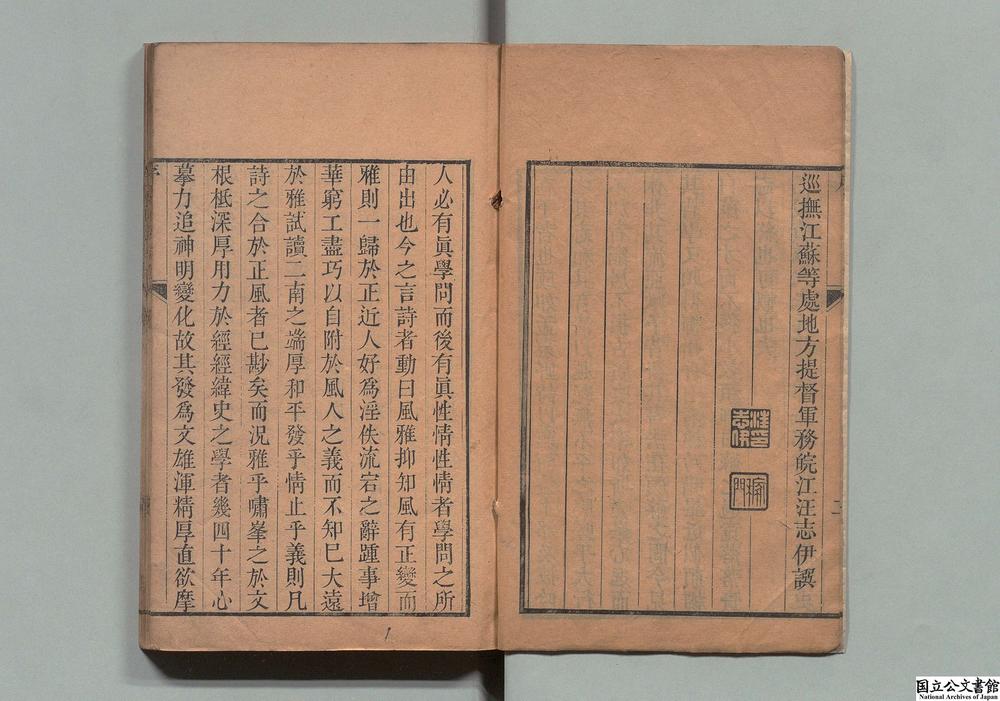 巡撫江蘇等處地方提督軍務皖江汪志伊譔
人必有眞學問而後有眞性情性情者學問之所
由出也今之言詩者動曰風雅抑知風有正變而
雅則一歸於正近人好爲淫佚流宕之辭踵事增
華窮工盡巧以自附於風人之義而不知巳大遠
於雅試讀二南之端厚和平發乎情止乎義則凡
詩之合於正風者巳尠矣而況雅乎嘯峯之於文
根柢深厚用力於經經緯史之學者幾四十年心
摹力追神明變化故其發爲文雄渾精厚直欲摩
国立公文書館
National Archives of Japan